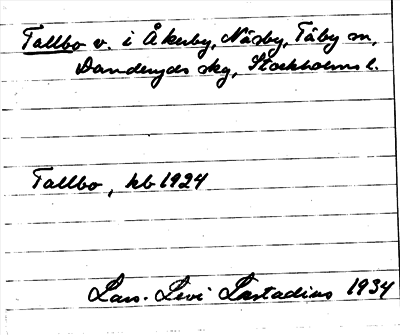 Tallbo v. i Åkerby, Näsby, Täby sn,
Danderyds skg, Stockholms l.
Tallbo, kb 1924
Lars-Levi Læstadius 1934